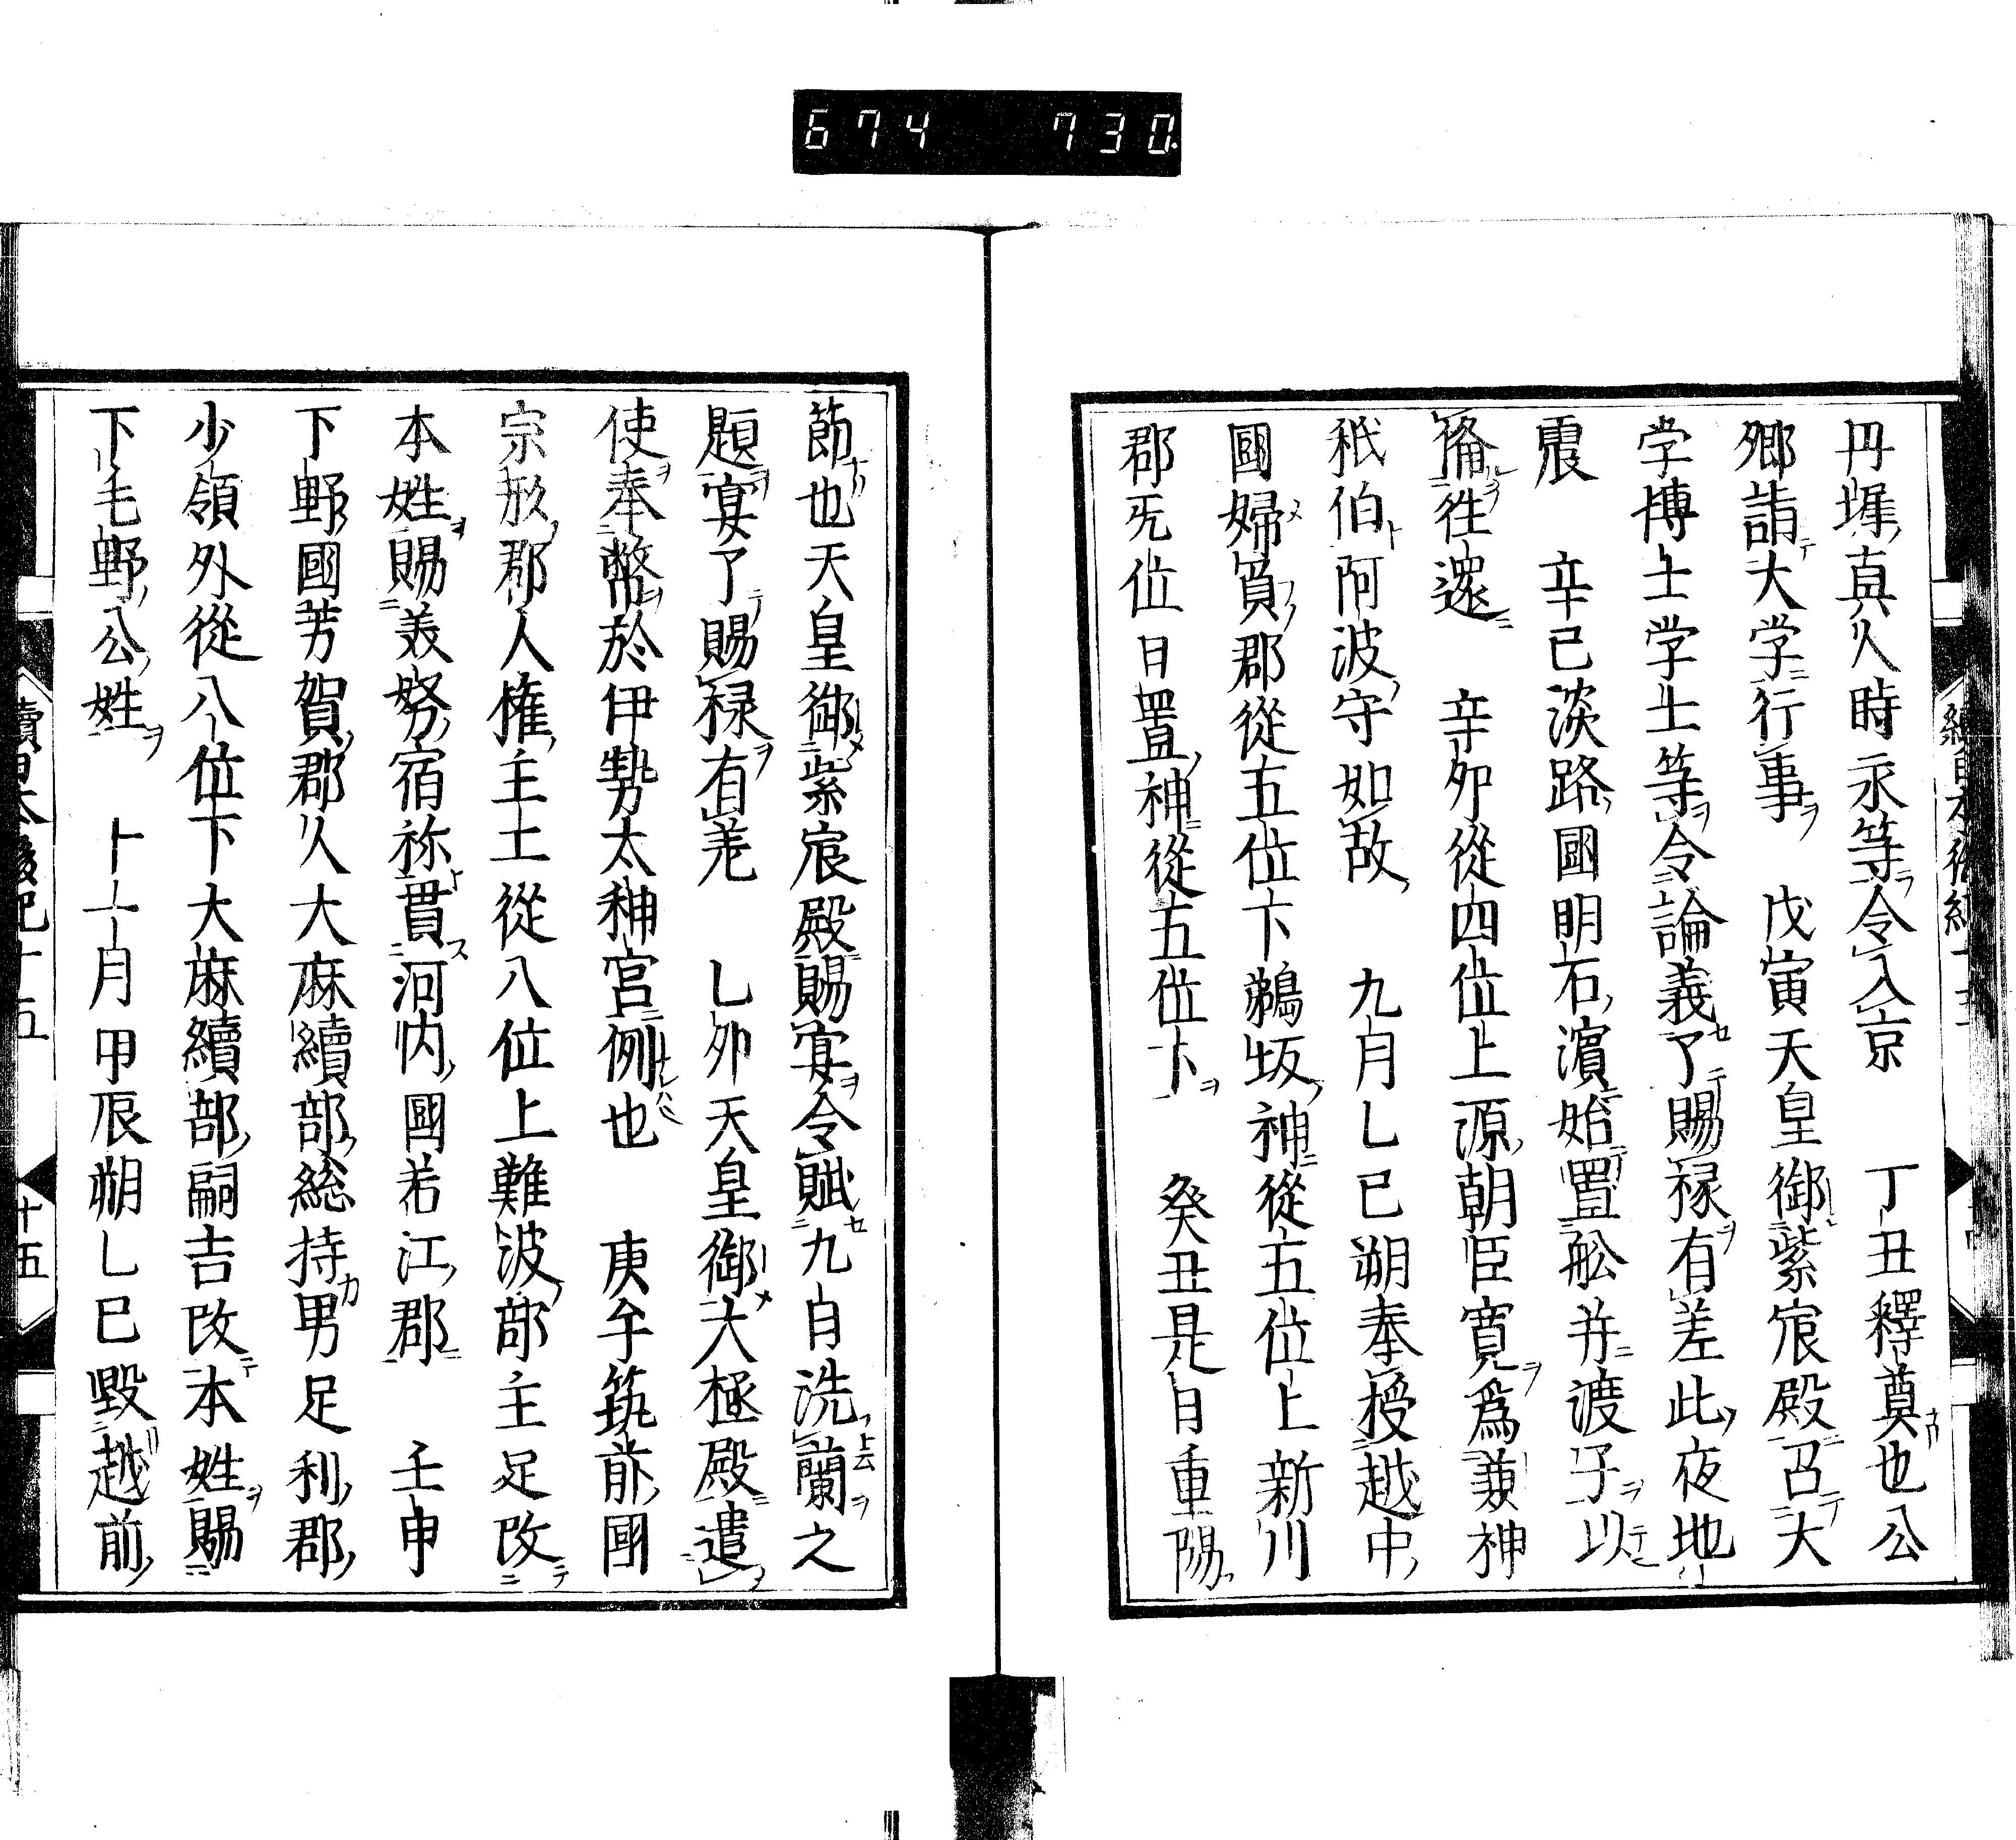 674 730
丹墀真人時永等令入京 丁丑釋奠也公
卿詣大学行事 戊寅天皇御紫宸殿召大
学博士学士等令論義了賜禄有差此夜地
震 辛巳淡路國明石濱始置舩并渡子以
俻徃還 辛卯從四位上源朝臣寛爲兼神
祇伯阿波守如故 九月乚巳朔奉授越中
國婦負郡從五位下鵜坂神從五位上新川
郡旡位日置神從五位下 癸丑是日重陽
節也天皇御紫宸殿賜宴令賦九日洗蘭之
題宴了賜禄有差 乚卯天皇御大極殿遣
使奉幣於伊勢太神宮例也 庚午筑前國
宗形郡人權主工從八位上難波部主足改
本姓賜美努宿祢貫河内國若江郡 壬申
下野國芳賀郡人大麻續部総持男足利郡
少領外從八位下大麻續部嗣吉改本姓賜
下毛野公姓 十一月甲辰朔乚巳毀越前
續日本後紀十五
十五